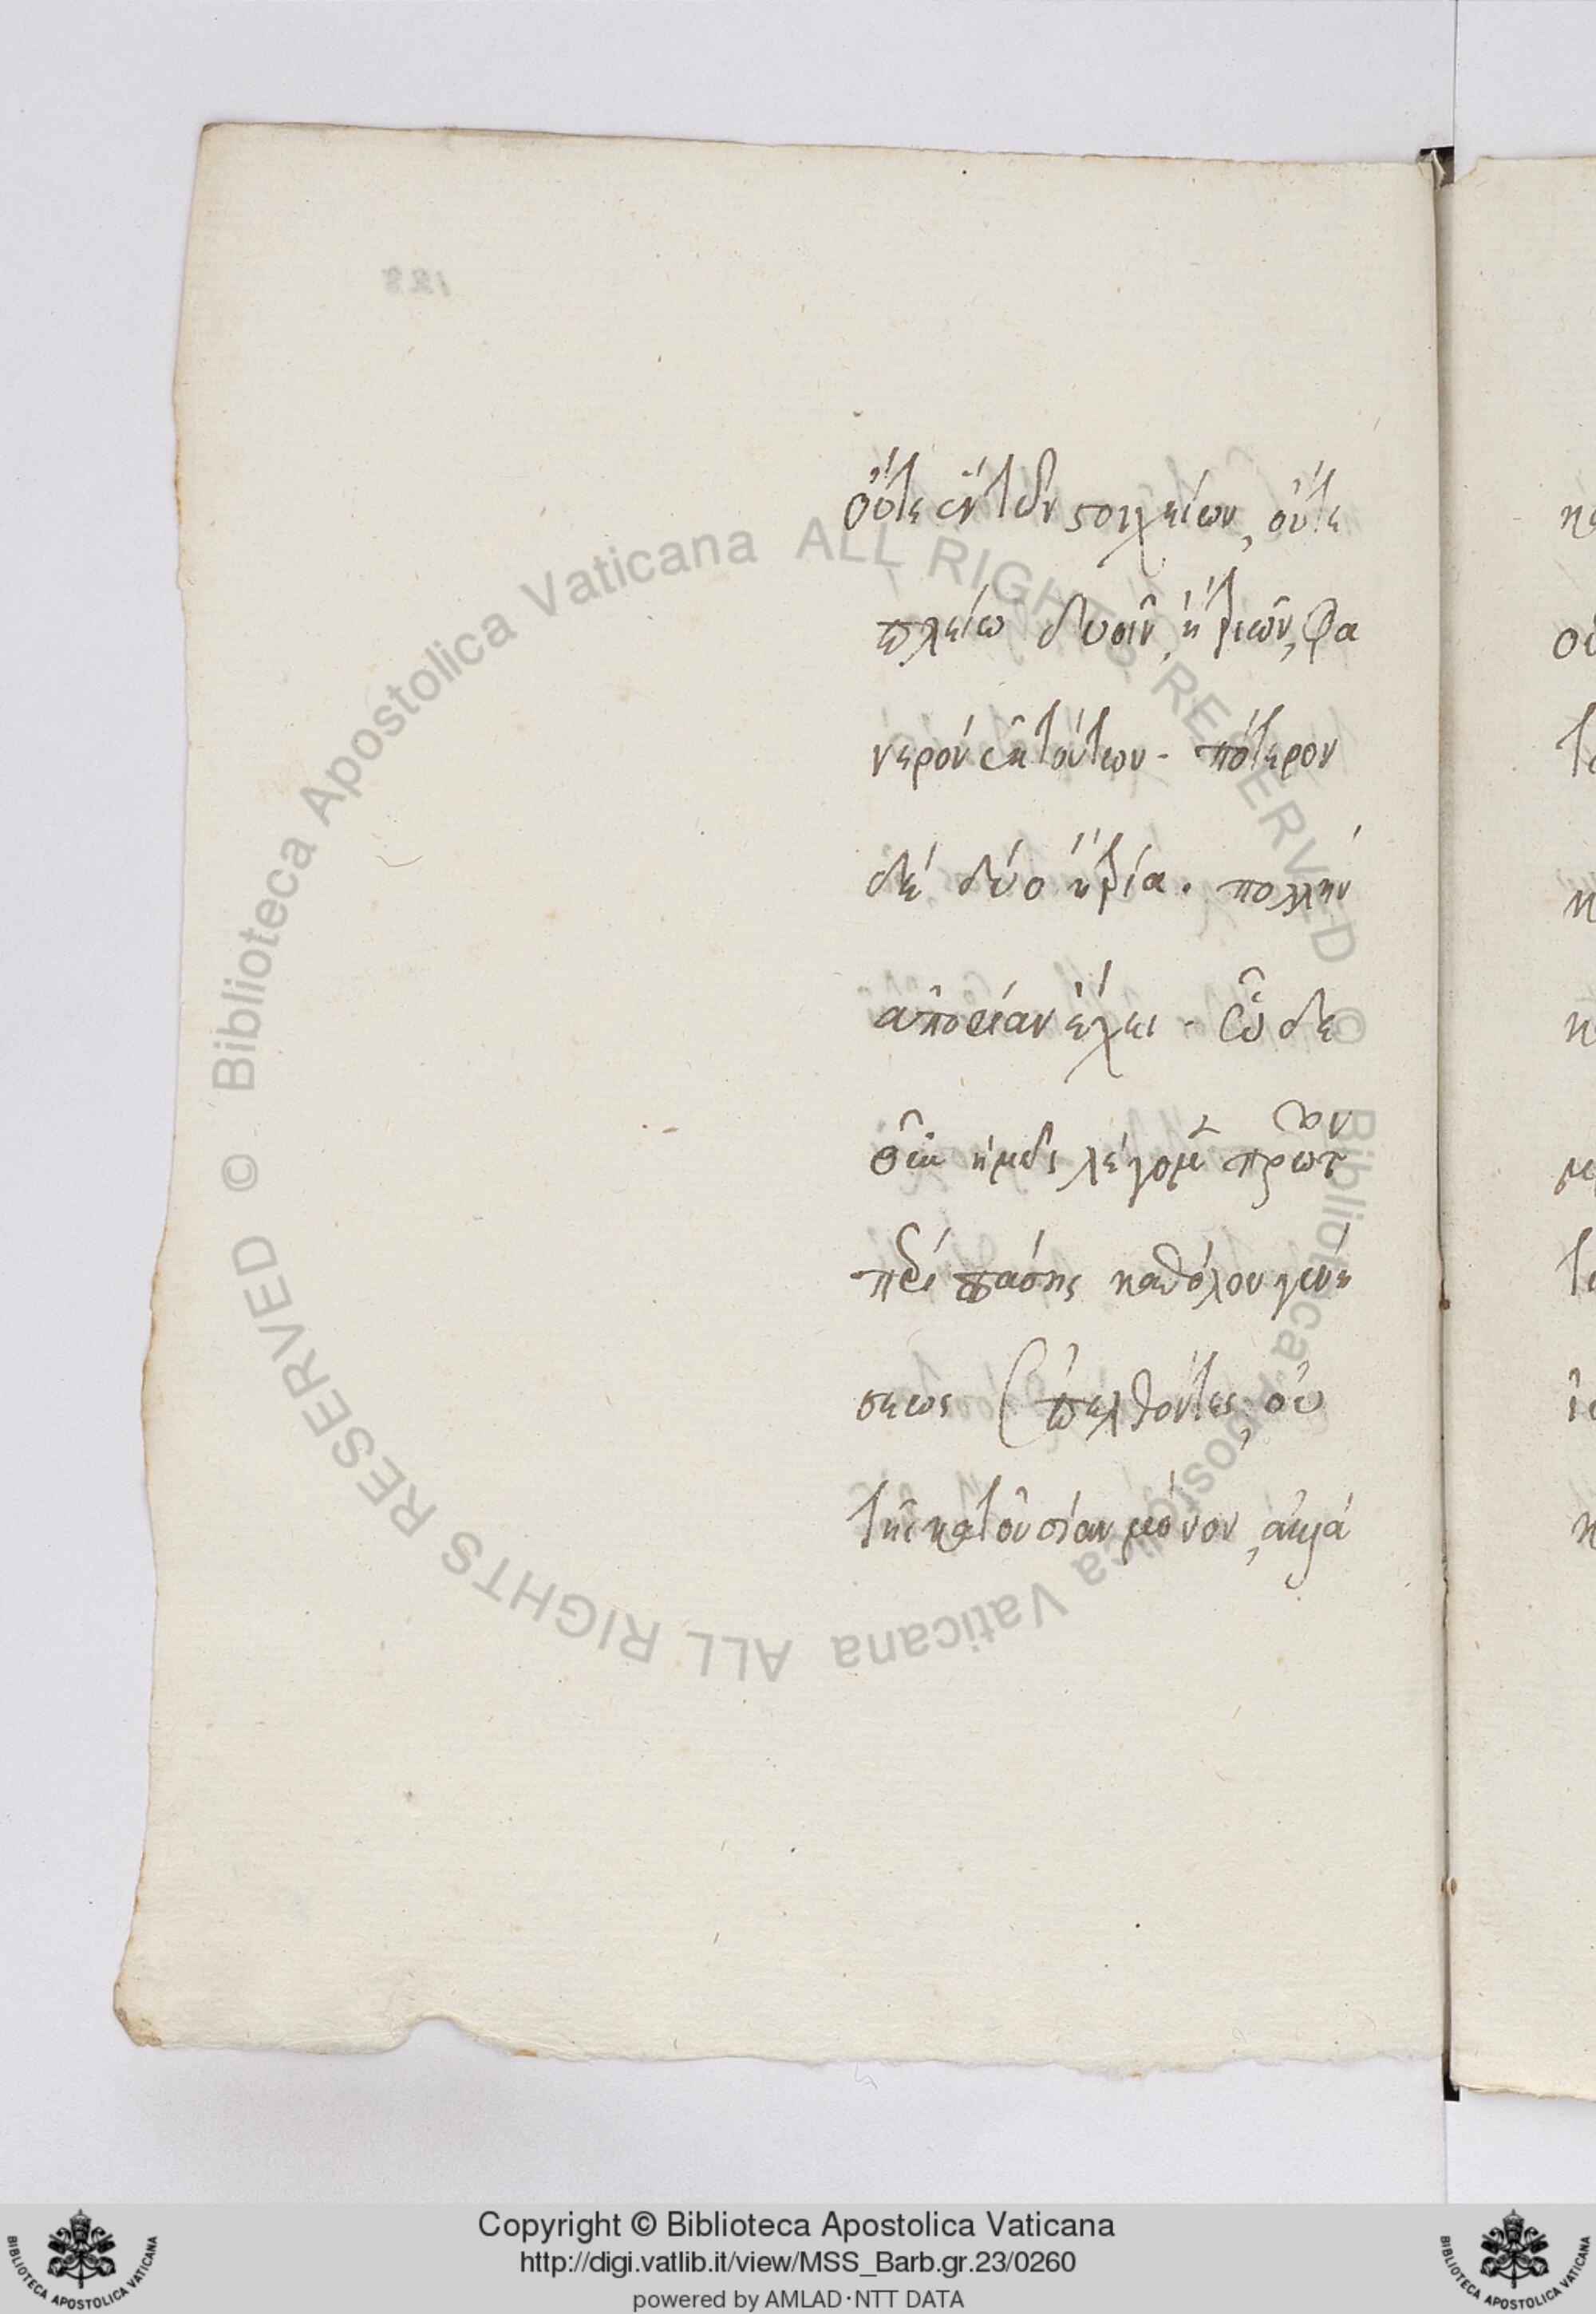 οὔτε ἓν τῶν στοιχείων, οὔτε
πλείω δυοῖν, ἢ τριῶν, φα
νερὸν ἐκ τούτων. πότερον
δὲ δύο ἢ τρία. πολλὴν
ἀπορίαν ἔχει. ὧδε
οὖν ἡμεῖς λέγομεν πρῶτον
περὶ πάσης καθόλου γενή
σεως ἐπελθόντες, οὐ
τῆς κατ' οὐσίαν μόνον, ἀλλὰ
128
Biblioteca Apostolica Vaticana ALL RIGHTS RESERVED ©
Biblioteca Apostolica Vaticana ALL RIGHTS RESERVED ©
Copyright © Biblioteca Apostolica Vaticana
http://digi.vatlib.it/view/MSS_Barb.gr.23/0260
powered by AMLAD·NTT DATA
BIBLIOTECA APOSTOLICA VATICANA
BIBLIOTECA APOSTOLICA VATICANA